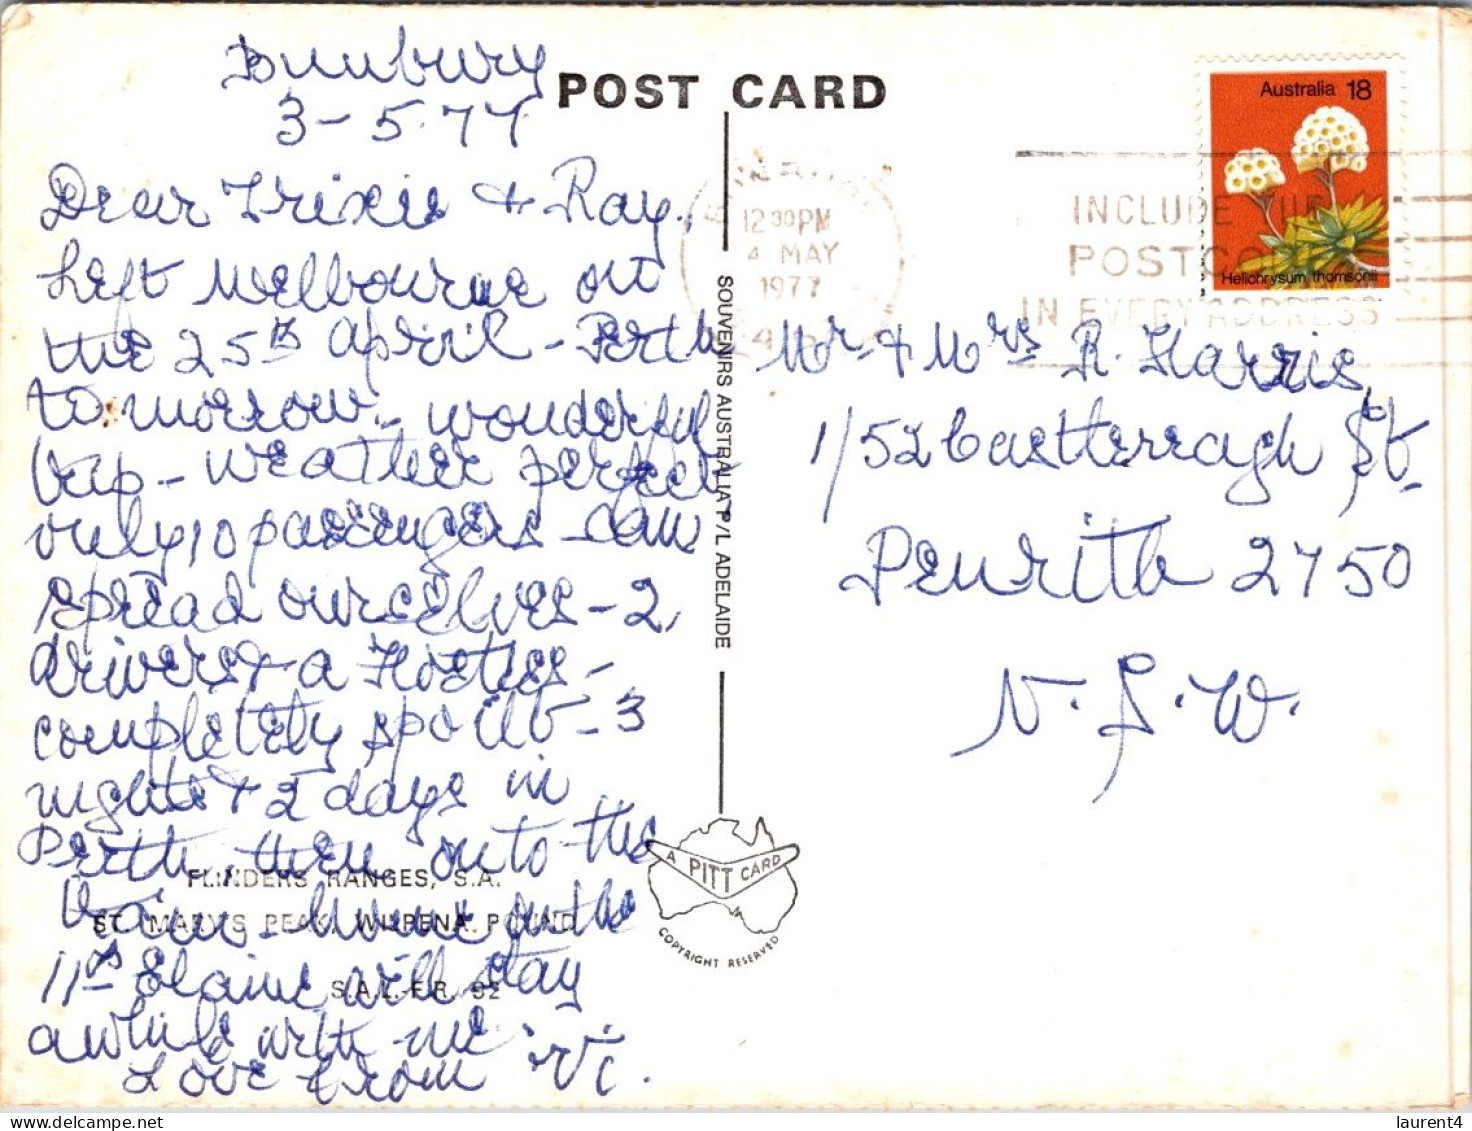 Bunbury
3-5.77
POST CARD
Dear Trixie & Ray,
Left Melbourne on
the 25th April - Perth
tomorrow - wonderful
trip - weather perfect
only 10 passengers - can
spread ourselves - 2
drivers & a Hostess -
completely spoilt - 3
nights & 2 days in
Perth, then onto the
train - home on the
11th Elaine will stay
awhile with me
Love from Vi.
FLINDERS RANGES, S.A.
ST. MARY'S PEAK, WILPENA POUND
S.A.L.-F.R. 92
SOUVENIRS AUSTRALIA P/L ADELAIDE
A PITT CARD
COPYRIGHT RESERVED
Australia 18
Helichrysum thomsonii
BUNBURY
12 30PM
4 MAY
1977
INCLUDE THE
POSTCODE
IN EVERY ADDRESS
Mr & Mrs R. Harris
1/52 Castlereagh St.
Penrith 2750
N.S.W.
laurent4